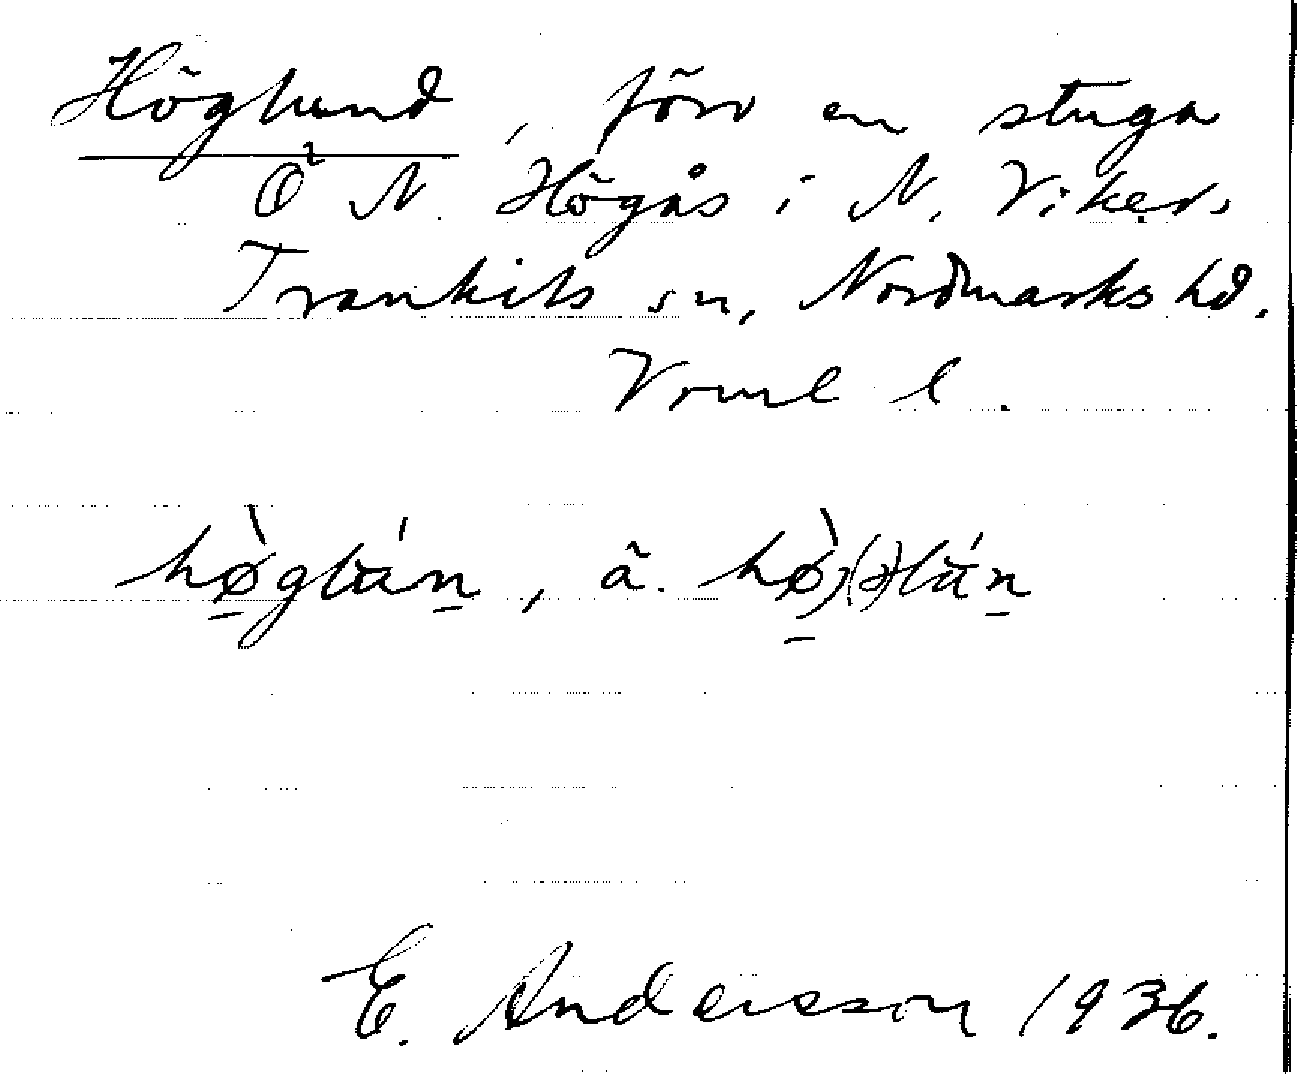 Höglund, förr en stuga
Ö N. Högås i N. Viker,
Trankils sn, Nordmarks hd.
Vrml l.
hø̀glán, ä. hø̀j(ə)lán
E. Andersson 1936.